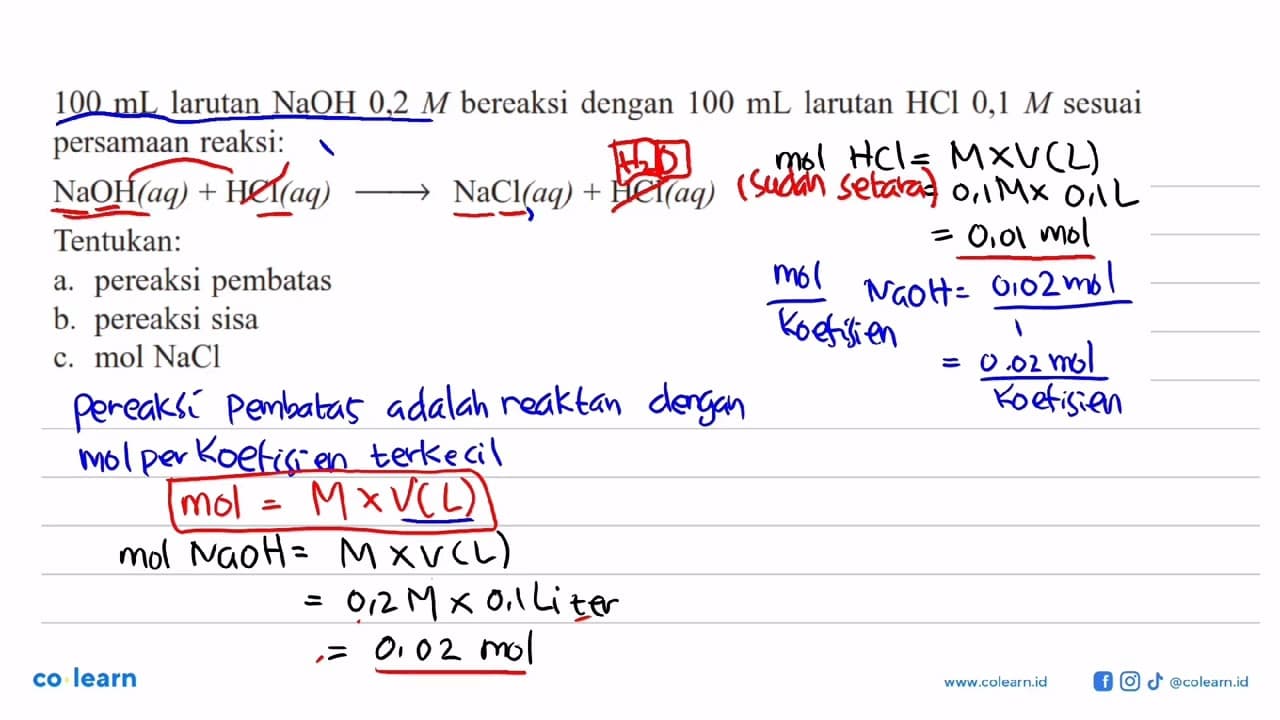 100 mL larutan NaOH 0,2 M bereaksi dengan 100 mL larutan HCl 0,1 M sesuai
persamaan reaksi:
NaOH(aq) + HCl(aq) ⟶ NaCl(aq) + HCl(aq)
H₂O
(sudah setara)
Tentukan:
a. pereaksi pembatas
b. pereaksi sisa
c. mol NaCl
Pereaksi pembatas adalah reaktan dengan
mol per koefisien terkecil
mol = M × V(L)
mol NaOH = M × V(L)
= 0,2 M × 0,1 Liter
= 0,02 mol
mol HCl = M × V(L)
= 0,1 M × 0,1 L
= 0,01 mol
mol/Koefisien NaOH = 0,02 mol/1
= 0.02 mol/Koefisien
co learn
www.colearn.id
@colearn.id